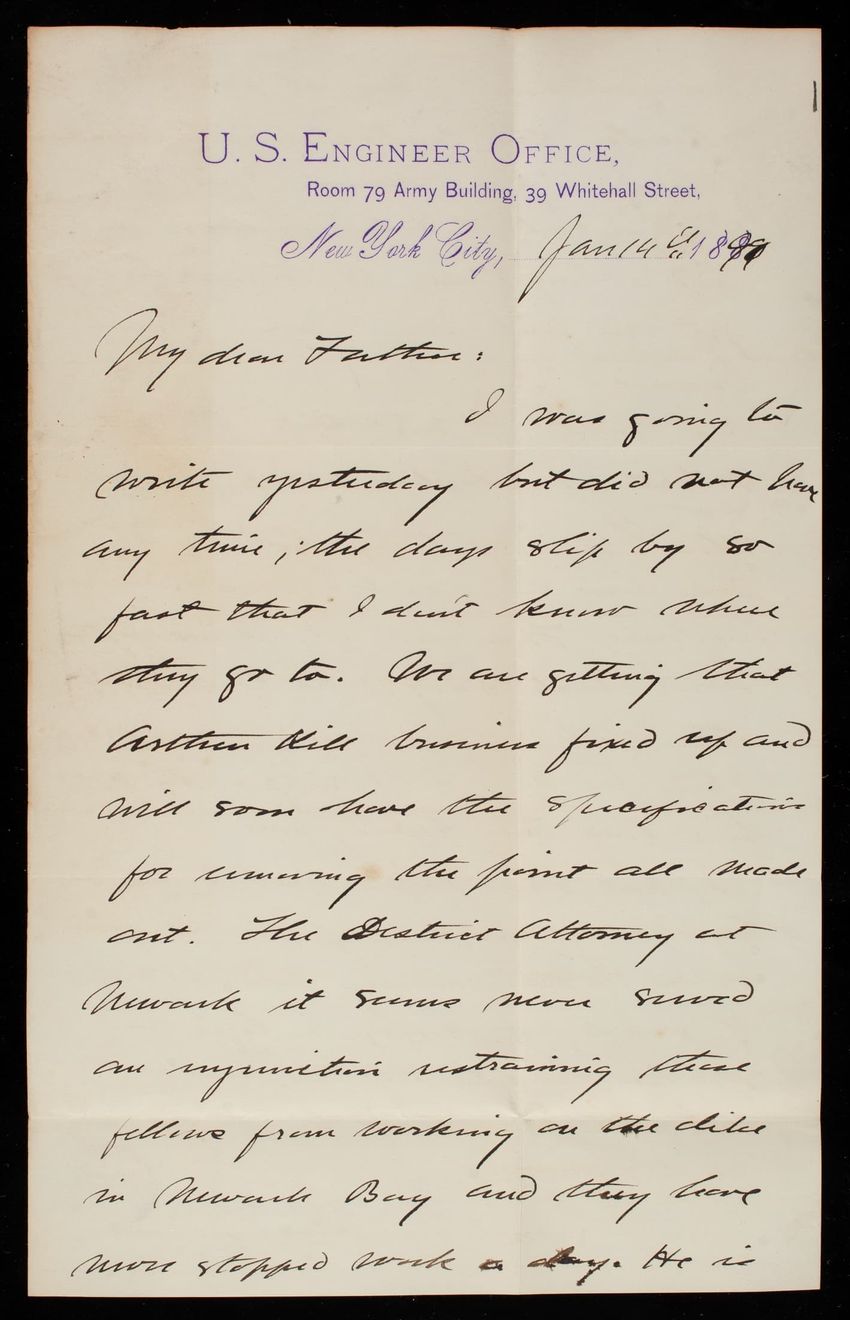 U. S. ENGINEER OFFICE,
Room 79 Army Building, 39 Whitehall Street,
New York City, Jan 14th 1890
My dear Father:
I was going to
write yesterday but did not have
any time; the days slip by so
fast that I don't know where
they go to. We are getting that
Arthur Kill business fixed up and
will soon have the specifications
for removing the point all made
out. The District Attorney at
Newark it seems never served
an injunction restraining those
fellows from working on the dike
in Newark Bay and they have
never stopped work a day. He is